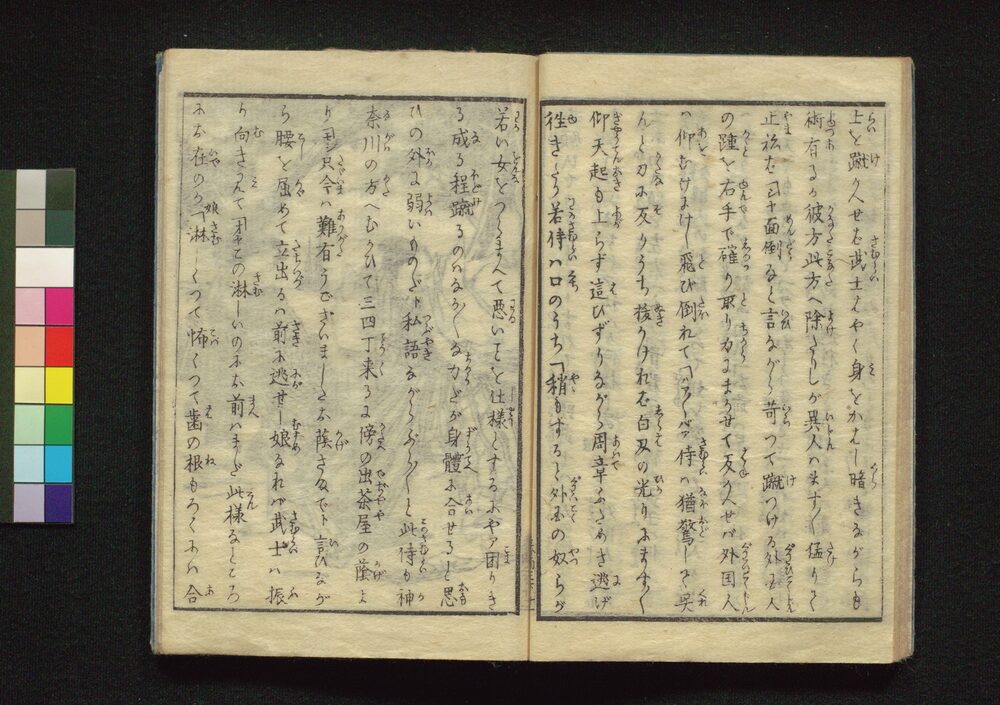 上を蹴かへせむ武士はやく身をかはし暗きながらも
術有るか彼方此方へ除たりしが異人はます〳〵猛りて
止ねば 面倒なと言ながら苛つて蹴つける外国人
の踵を右手で確り取り力にまかせて反かへせば外国人
ハ仰むけに 飛び倒れて 侍ハ猶驚して呉
んと刀に反りうち抜かければ白刃の光りにます〳〵
仰天起も上らず這ひずりながら周章ふためき逃げ
往きたる若侍ハ口のうち「稍もすると外国の奴らが
若い女をつらまへて悪いことを仕様とするにやア困りき
る成る程蹴るのハなか〳〵な力だが身體に合せると思
ひの外に弱いものだト私語ながらぶら〳〵と此侍も神
奈川の方へむかひて三四丁来るに傍の出茶屋の蔭よ
り 只今ハ難有うございましたお蔭さまでト言ひなが
ら腰を屈めて立出るハ前に逃せし娘なれバ武士ハ振
り向きて この淋しいのにお前ハまだ此様なところ
にお在のか「淋しくつて怖くつて歯の根もろくにハ合